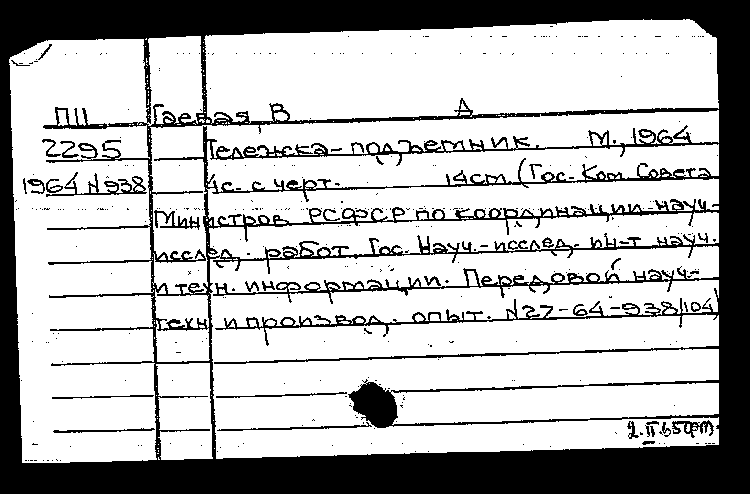 П11 Гаевая, В А
2295 Тележка-подъемник. М., 1964
1964 N938 4с. с черт. 14см (Гос. Ком. Совета
Министров РСФСР по координации науч-
исслед. работ. Гос. Науч.-исслед. ин-т науч.
и техн. информации. Передовой науч-
техн и производ. опыт. N27-64-938/104)
2.II.65